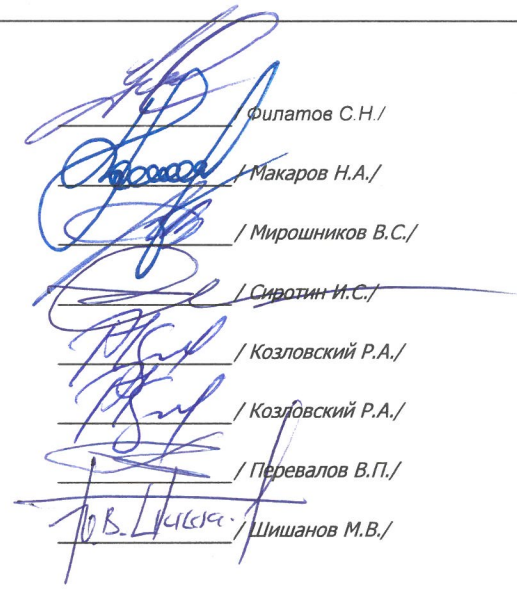 / Филатов С.Н./
/ Макаров Н.А./
/ Мирошников В.С./
/ Сиротин И.С./
/ Козловский Р.А./
/ Козловский Р.А./
/ Перевалов В.П./
/ Шишанов М.В./